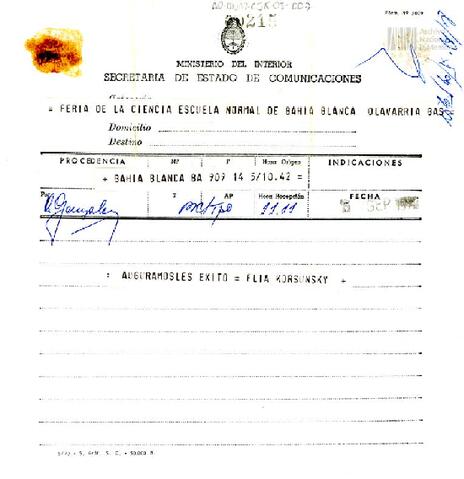 215
MINISTERIO DEL INTERIOR
SECRETARIA DE ESTADO DE COMUNICACIONES
= FERIA DE LA CIENCIA ESCUELA NORMAL DE BAHIA BLANCA OLAVARRIA BAS
Domicilio
Destino
PROCEDENCIA Nº P Hora Origen INDICACIONES
+ BAHIA BLANCA BA 909 14 5/10.42 =
T AP Hora Recepción FECHA
R. Gonzalez 11.11 SEP
: AUGURAMOSLES EXITO = FLIA KORSUNSKY +